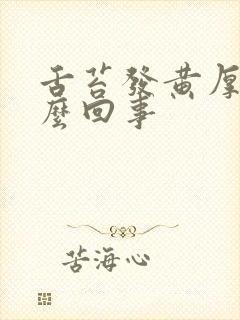 舌苔發黄厚
麼回事
苦海心